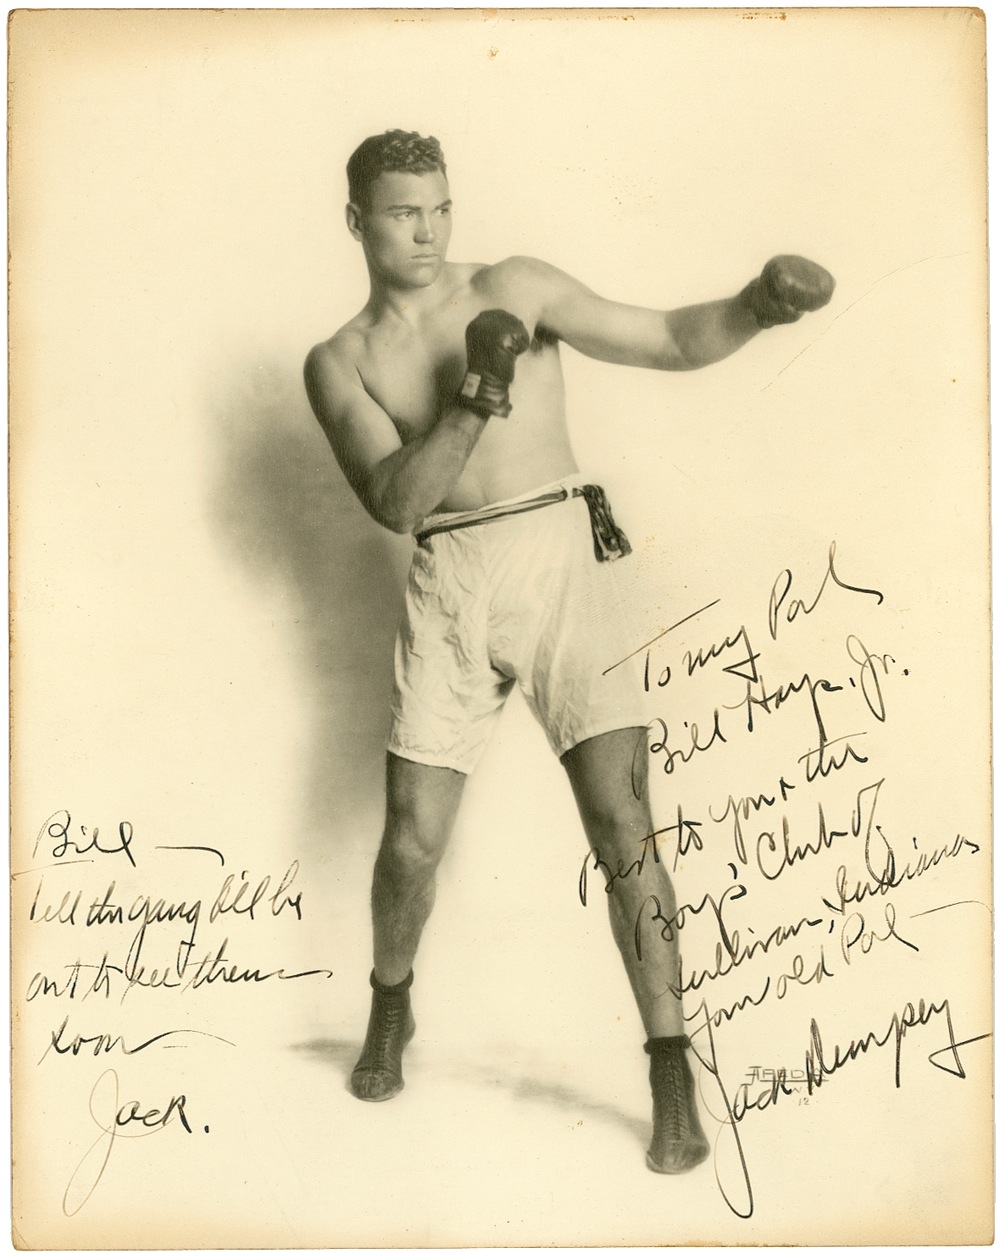 To my Pal
Bill Hays, Jr.
Best to you & the
Boy's Club of
Sullivan, Indiana
Your old Pal
Jack Dempsey
Bill —
Tell the gang I'll be
out to see them
soon
Jack.